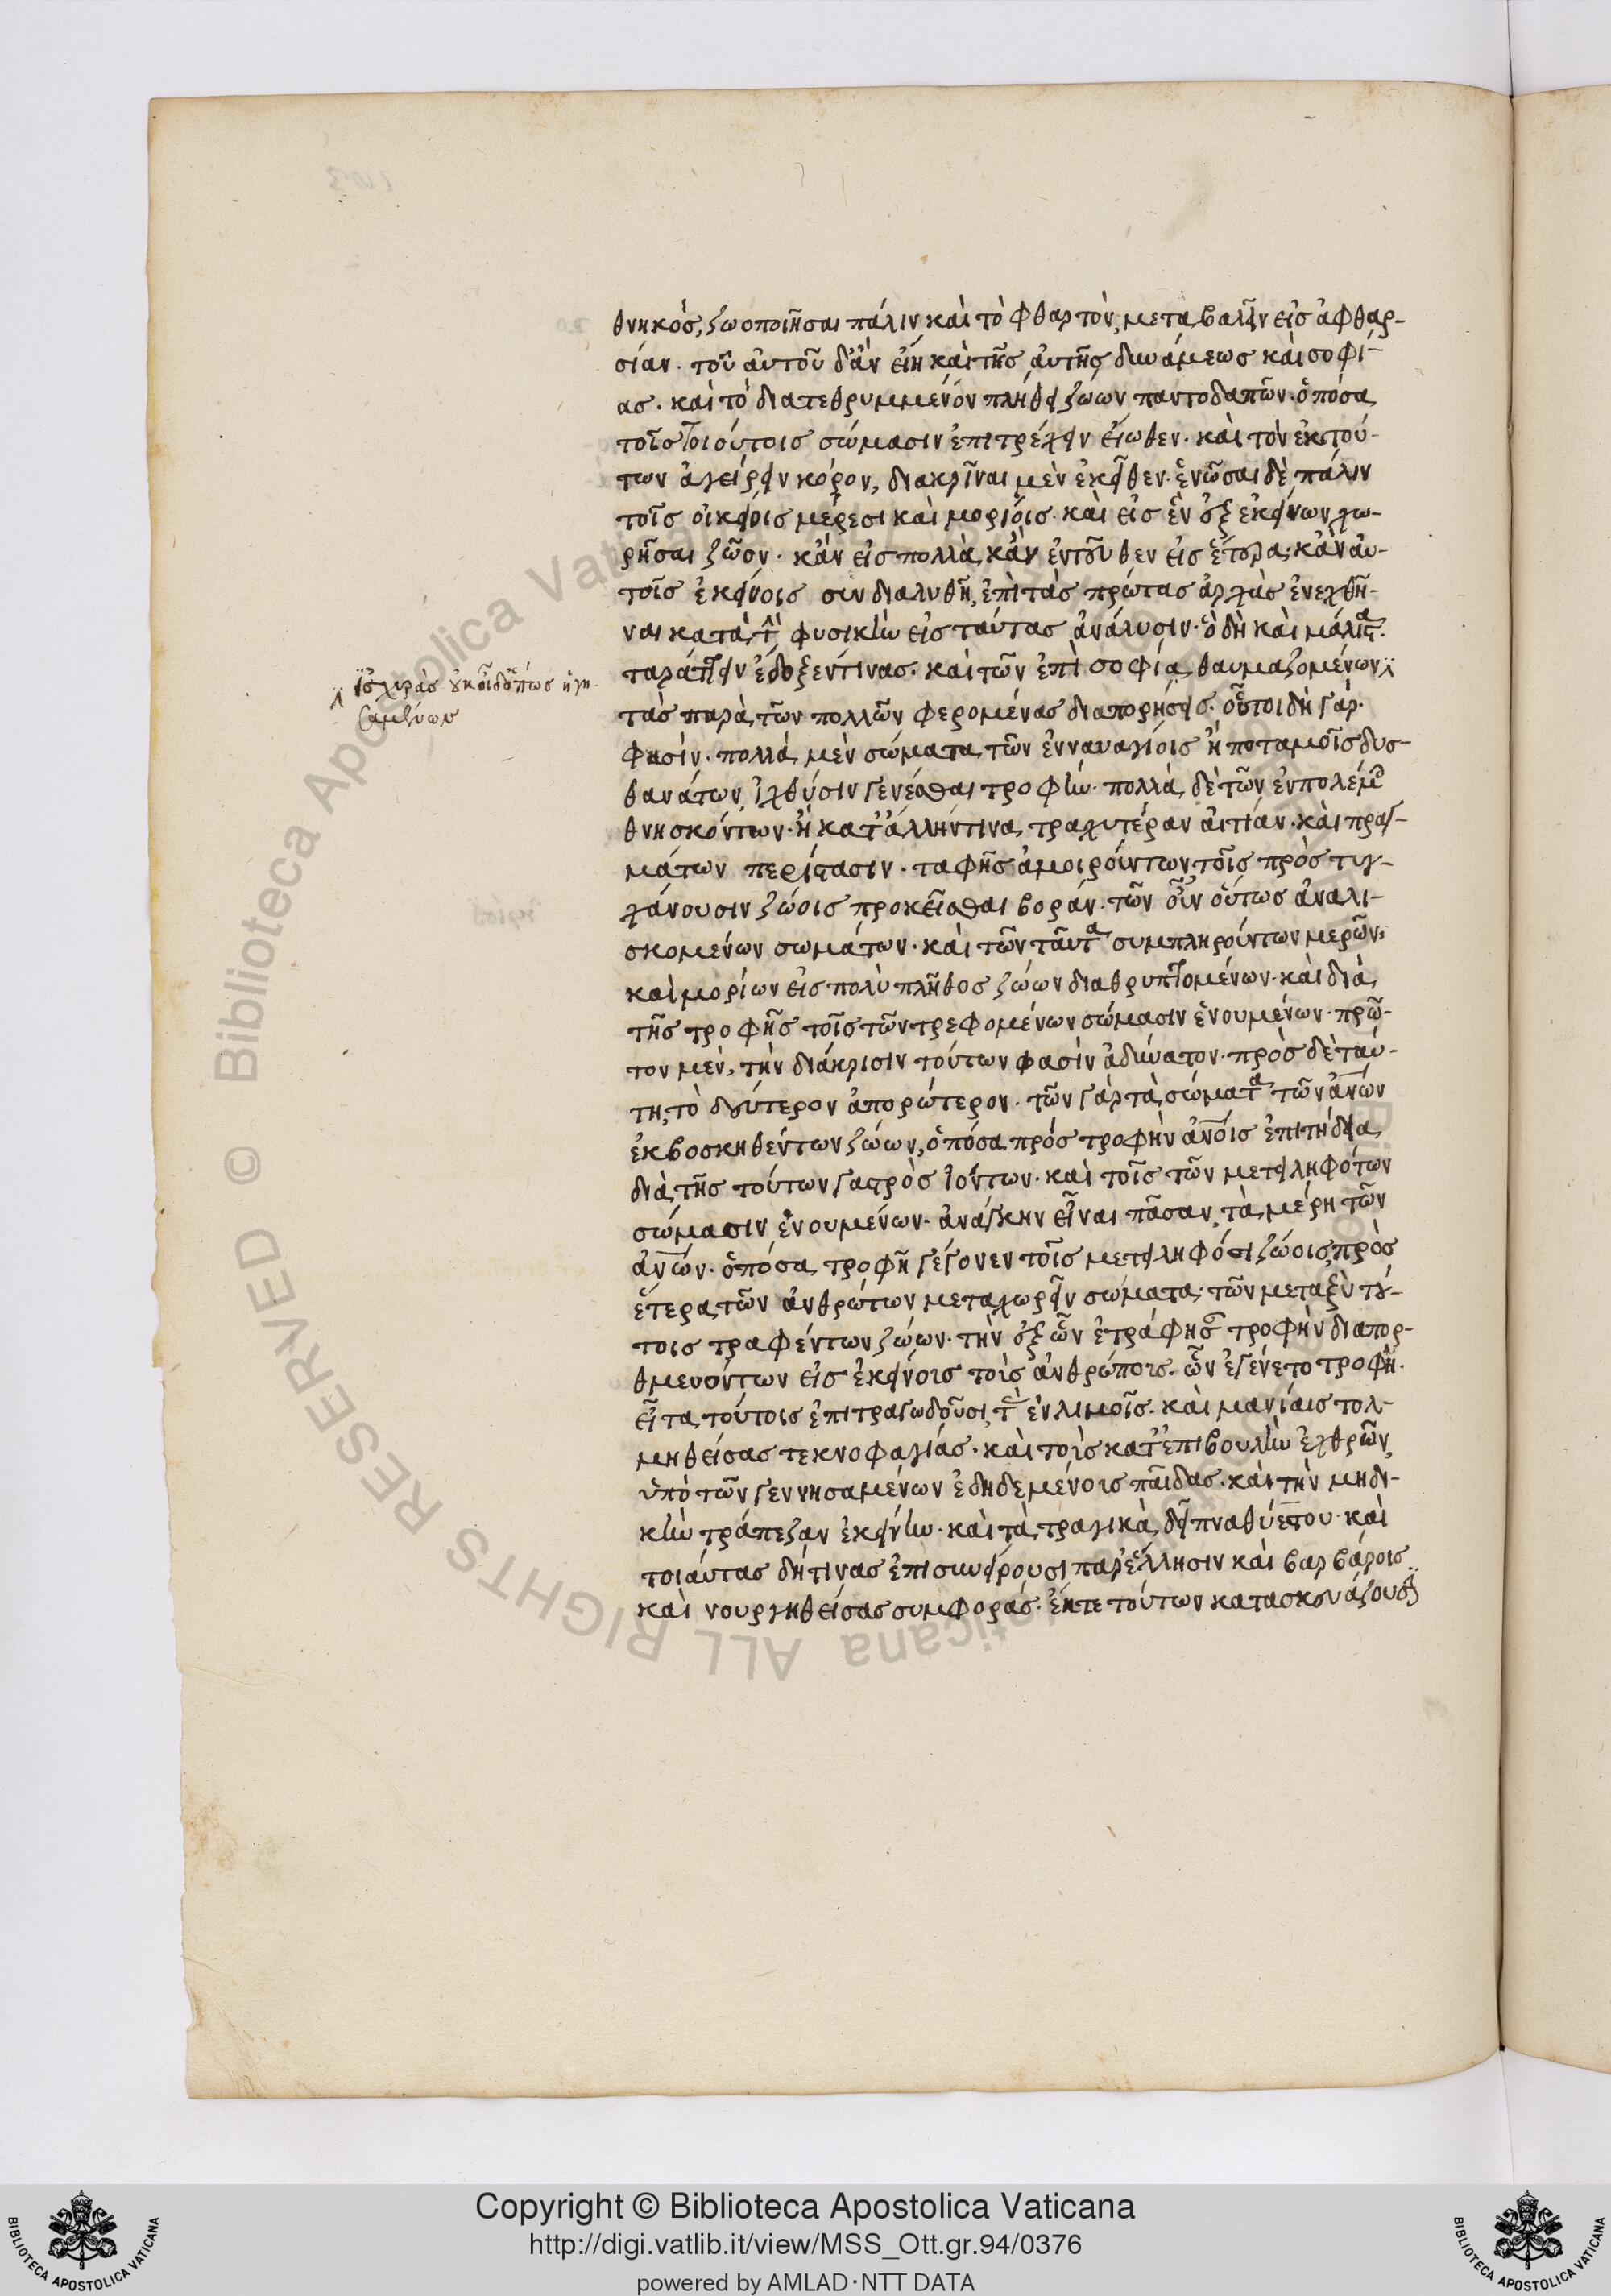 θνηκὸς, ζωοποιῆσαι πάλιν καὶ τὸ φθαρτὸν, μεταβαλεῖν εἰς ἀφθαρ-
σίαν. τοῦ αὐτοῦ δ' ἂν εἴη καὶ τῆς αὐτῆς δυνάμεως καὶ σοφί-
ας. καὶ τὸ διατεθρυμμένον πλήθει ζώων παντοδαπῶν. ὁπόσα
τοῖς τοιούτοις σώμασιν ἐπιτρέχειν εἴωθεν. καὶ τὸν ἐκ τού-
των ἀγείρειν κόρον, διακρῖναι μὲν ἐκεῖθεν. ἑνῶσαι δὲ πάλιν
τοῖς οἰκείοις μέρεσι καὶ μορίοις. κἂν εἰς ἓν ἐξ ἐκείνων χω-
ρῆσαι ζῶον. κἂν εἰς πολλὰ, κἂν ἐντεῦθεν εἰς ἕτερα, κἂν αὐ-
τοῖς ἐκείνοις συνδιαλυθῆ, ἐπὶ τὰς πρώτας ἀρχὰς ἐνεχθῆ-
ναι κατὰ τὴν φυσικὴν εἰς ταύτας ἀνάλυσιν. ὃ δὴ καὶ μάλιστα
ταράττειν ἔδοξεν τινας. καὶ τῶν ἐπὶ σοφία θαυμαζομένων
ἰσχυρὰς οὐκ οἶδ' ὅπως ἡγη-
σαμένων
τὰς παρὰ τῶν πολλῶν φερομένας διαπορήσεις. οὗτοι δὴ γάρ
φασίν. πολλὰ μὲν σώματα τῶν ἐν ναυαγίοις ἢ ποταμοῖς δυσ-
θανάτων ἰχθύσιν γενέσθαι τροφὴν. πολλὰ δὲ τῶν ἐν πολέμοις
θνησκόντων. ἢ κατ' ἄλλην τινα τραχυτέραν αἰτίαν. καὶ πραγ-
μάτων περίστασιν. ταφῆς ἀμοιρούντων, τοῖς προστυγ-
χάνουσιν ζώοις προκεῖσθαι βοράν. τῶν οὖν οὕτως ἀναλι-
σκομένων σωμάτων. καὶ τῶν ταῦτα συμπληρούντων μερῶν.
καὶ μορίων εἰς πολὺ πλῆθος ζώων διαθρυπτομένων. καὶ διὰ
τῆς τροφῆς τοῖς τῶν τρεφομένων σώμασιν ἑνουμένων. πρῶ-
τον μὲν, τὴν διάκρισιν τούτων φασὶν ἀδύνατον. πρὸς δὲ ταύ-
τη, τὸ δεύτερον ἀπορώτερον. τῶν γὰρ τὰ σώματα τῶν ἀνῶν
ἐκβοσκηθέντων ζώων, ὁπόσα πρὸς τροφὴν ἀνοις ἐπιτήδεια
διὰ τῆς τούτων γαστρὸς ἰόντων. καὶ τοῖς τῶν μετειληφότων
σώμασιν ἑνουμένων. ἀνάγκην εἶναι πᾶσαν, τὰ μέρη τῶν
ἀνῶν. ὁπόσα τροφὴ γέγονεν τοῖς μετειληφόσι ζώοις, πρὸς
ἕτερα τῶν ἀνθρώπων μεταχωρεῖν σώματα. τῶν μεταξὺ τού-
τοις τραφέντων ζώων. τὴν ἐξ ὧν ἐτράφησαν τροφὴν διαπορ-
θμευόντων εἰς ἐκείνοις τοῖς ἀνθρώποις. ὧν ἐγένετο τροφή.
εἶτα τούτοις ἐπιτραγωδοῦσι τὰς ἐν λιμοῖς. καὶ μανίαις τολ-
μηθείσας τεκνοφαγίας. καὶ τοὺς κατ' ἐπιβουλὴν ἐχθρῶν
ὑπὸ τῶν γεννησαμένων ἐδηδεμένοις παῖδας. καὶ τὴν μηδι-
κὴν τράπεζαν ἐκείνην. καὶ τὰ τραγικὰ δεῖπνα θυέστου. καὶ
τοιαύτας δή τινας ἐπισυνείρουσι παρ' ἕλλησιν καὶ βαρβάροις
καὶνουργηθείσας συμφοράς. ἔκ τε τούτων κατασκευάζουσιν
Copyright © Biblioteca Apostolica Vaticana
http://digi.vatlib.it/view/MSS_Ott.gr.94/0376
powered by AMLAD·NTT DATA
BIBLIOTECA APOSTOLICA VATICANA
BIBLIOTECA APOSTOLICA VATICANA